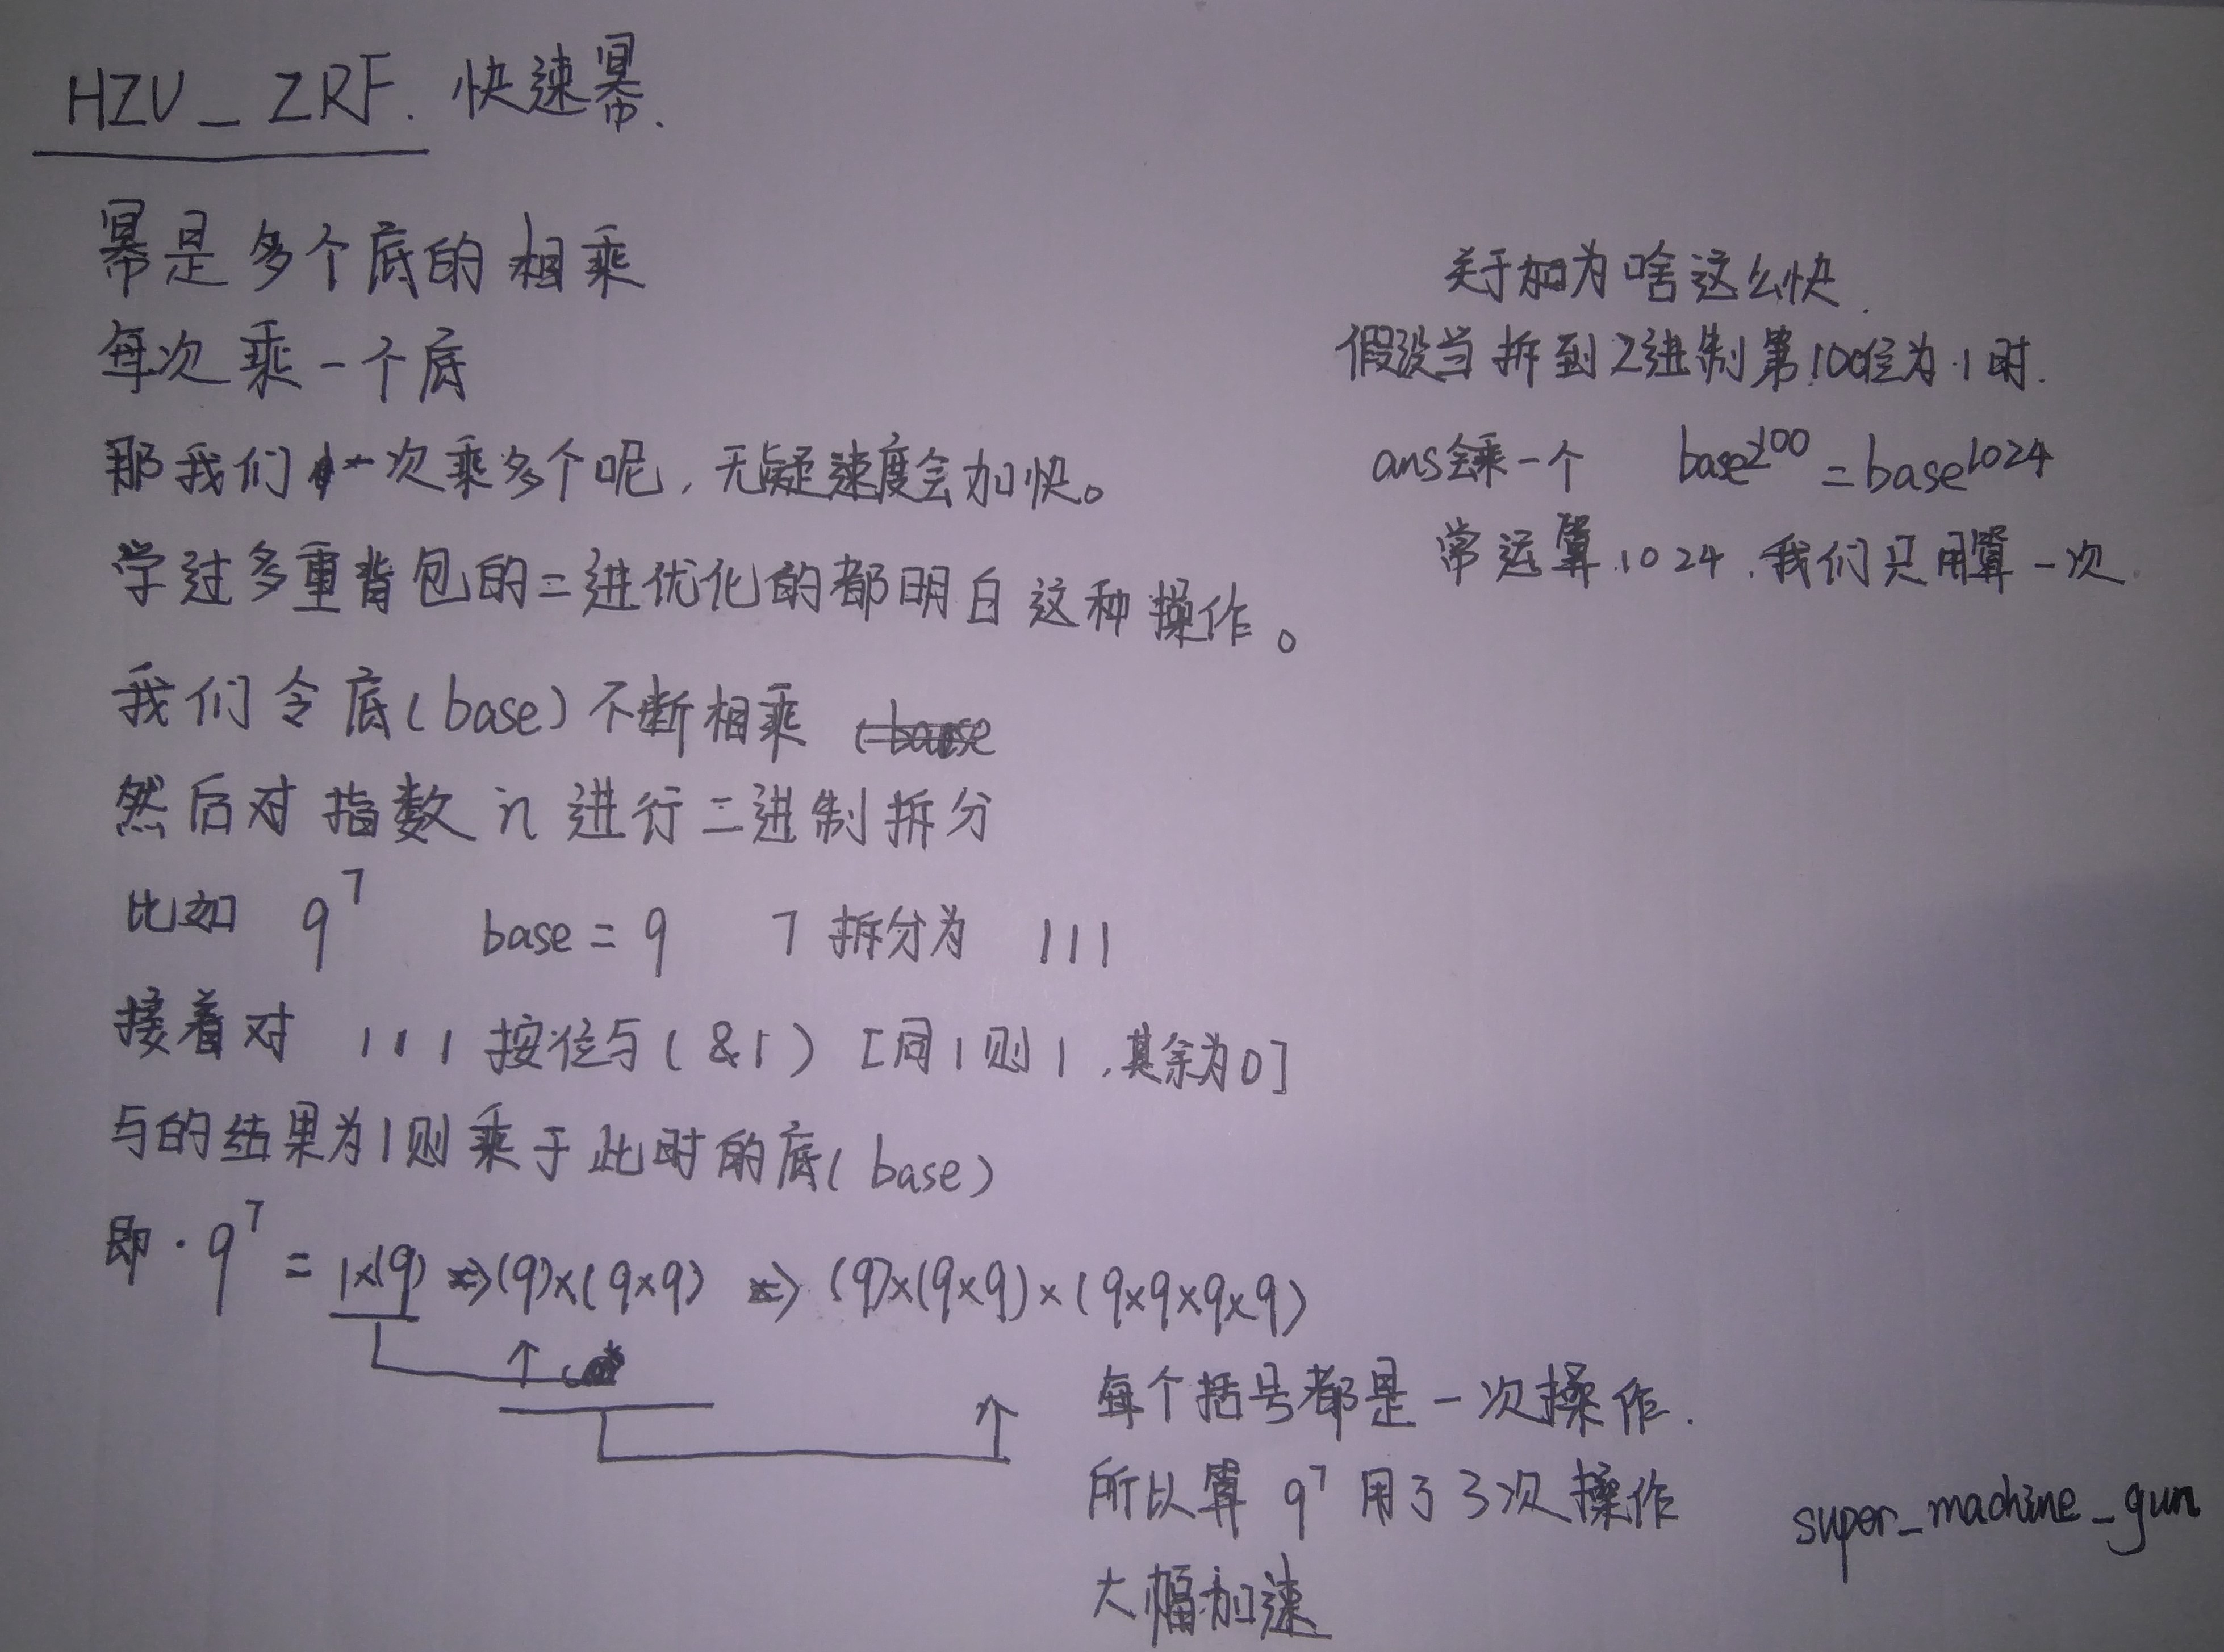 HZU_ZRF. 快速幂.
幂是多个底的相乘
每次乘一个底
那我们一次乘多个呢,无疑速度会加快。
学过多重背包的二进优化的都明白这种操作。
我们令底(base)不断相乘
然后对指数 n 进行二进制拆分
比如 9^7 base = 9 7 拆分为 111
接着对 111 按位与(&1) [同1则1,其余为0]
与的结果为1则乘于此时的底(base)
即·9^7 = 1×(9) => (9)×(9×9) => (9)×(9×9)×(9×9×9×9)
每个括号都是一次操作.
所以算 9^7 用了3次操作
大幅加速
关于为啥这么快.
假设当拆到2进制第100位为1时.
ans会乘一个 base^2^100 = base^1024
常运算1024.我们只用算一次.
super_machine_gun